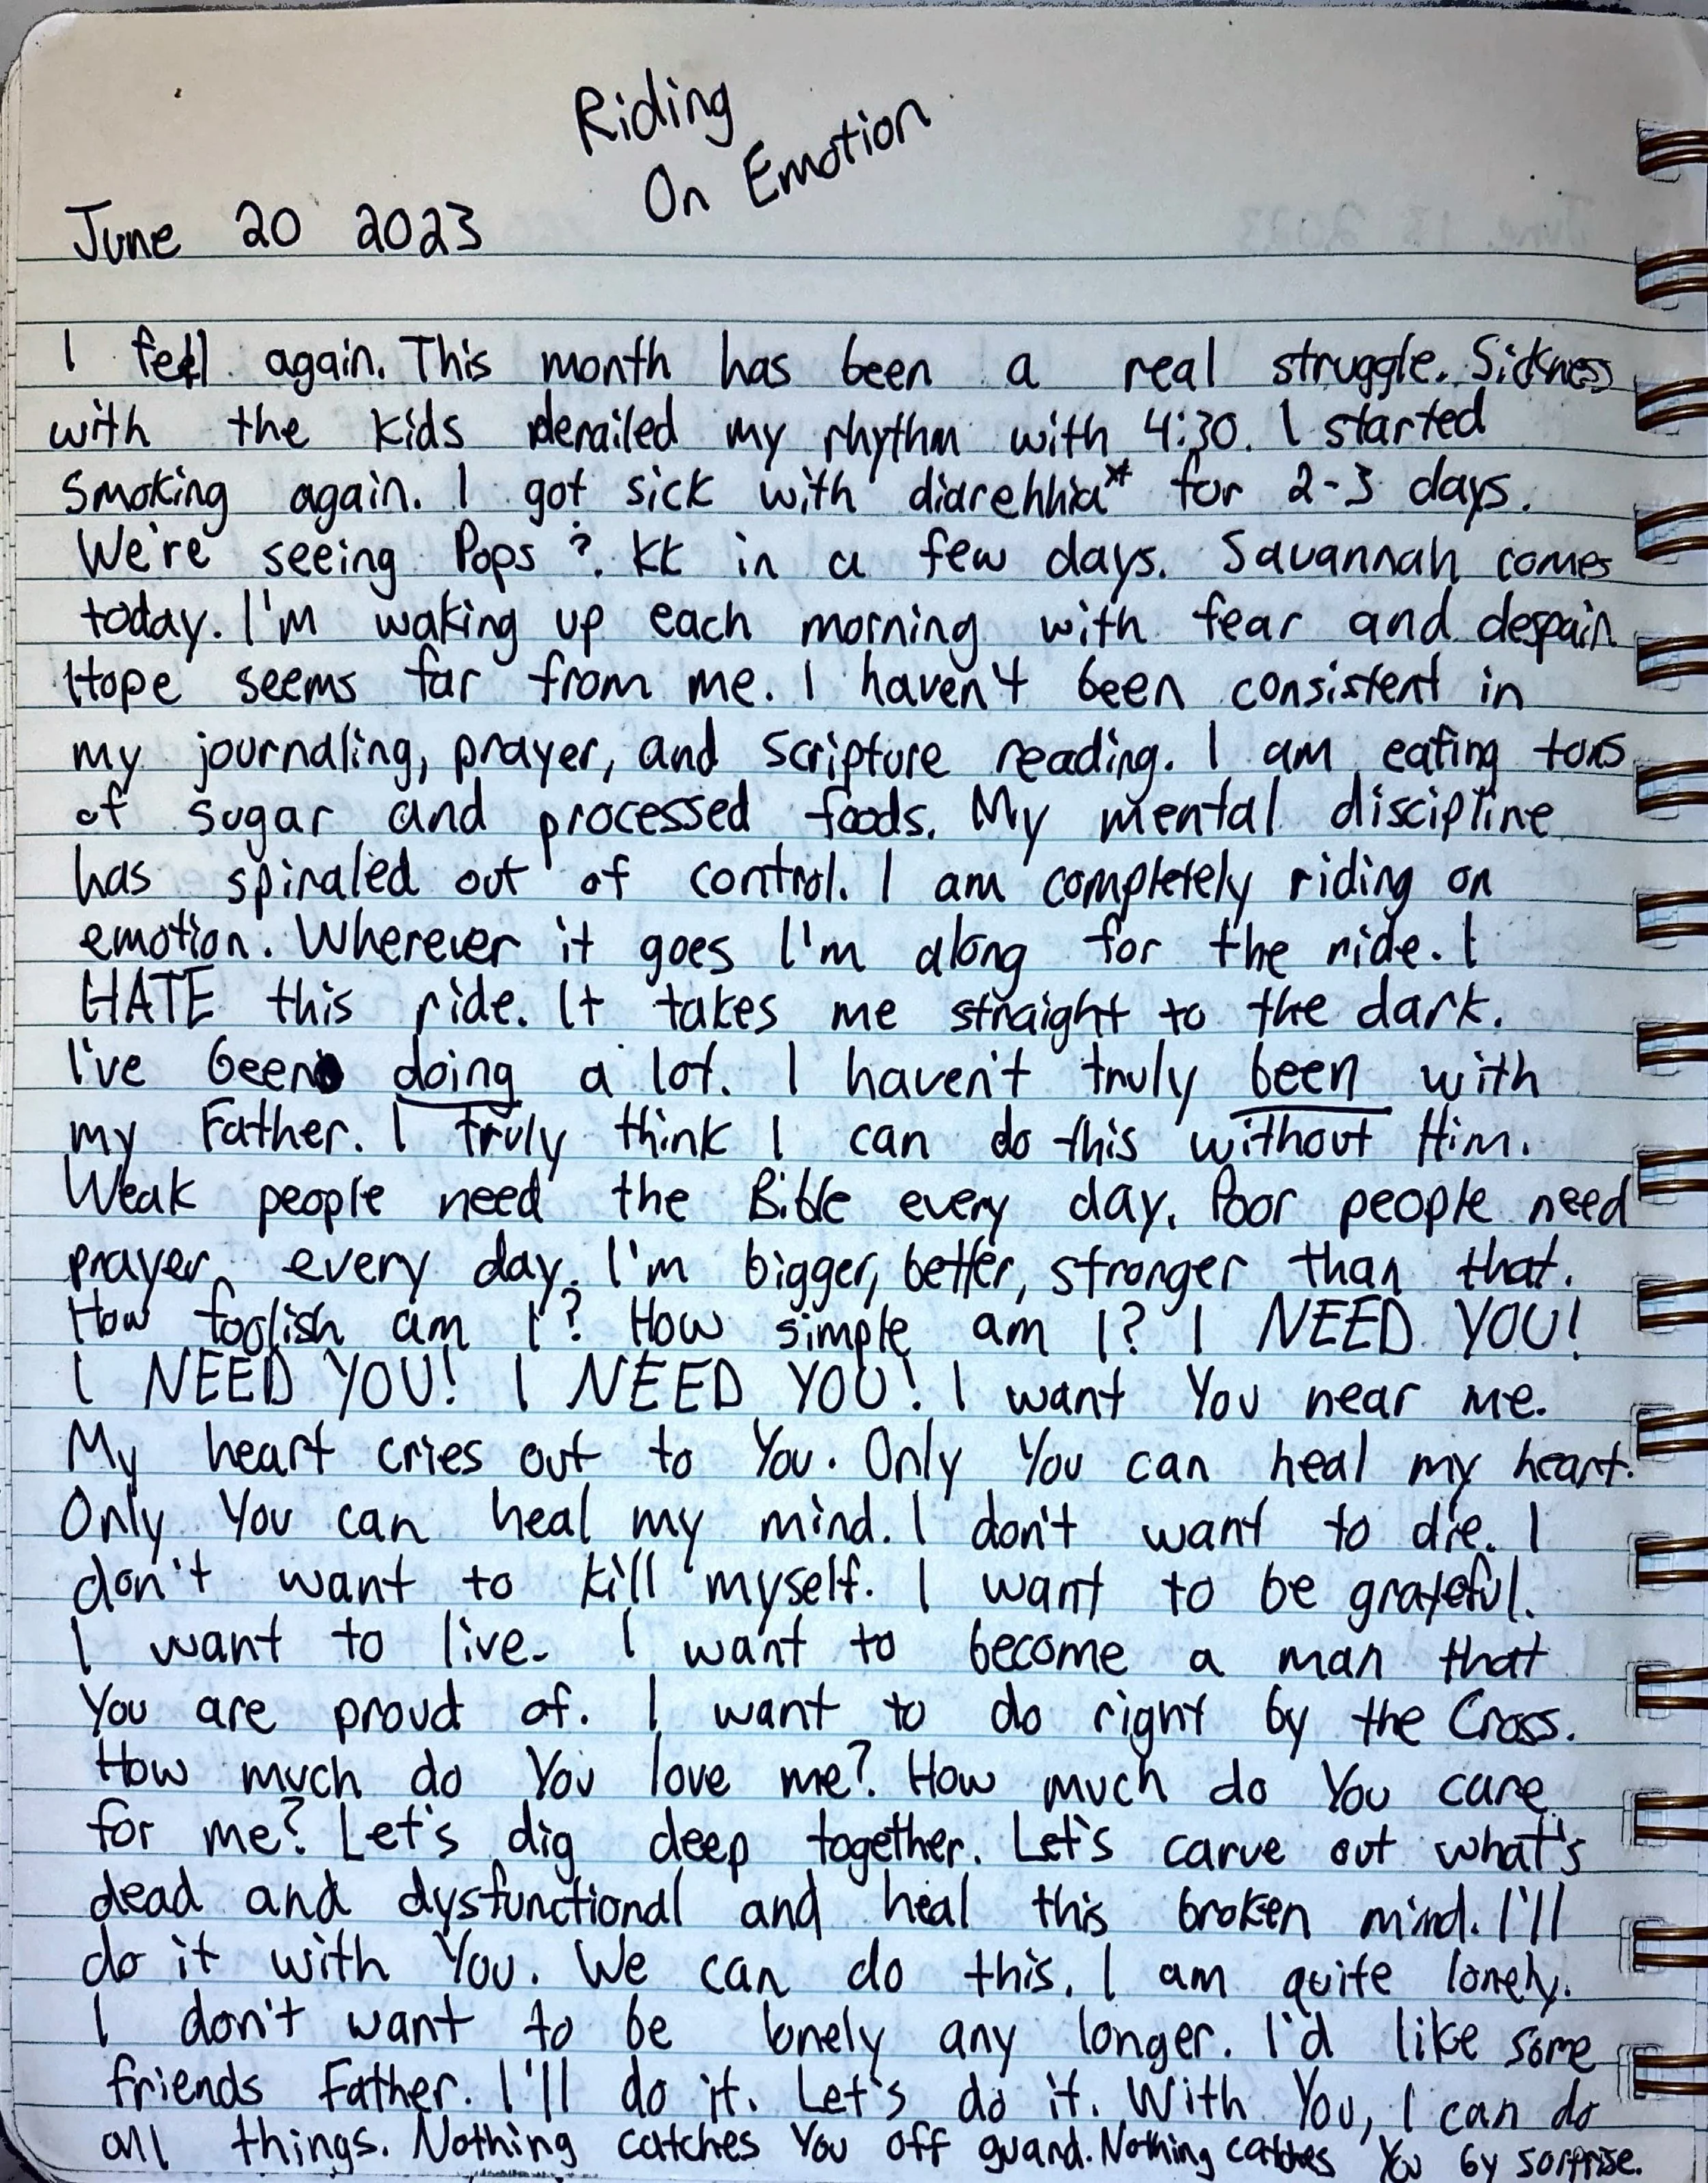 Riding
On Emotion
June 20 2023
I feel again. This month has been a real struggle. Sickness
with the kids derailed my rhythm with 4:30. I started
smoking again. I got sick with diarehhia* for 2-3 days.
We're seeing Pops & KK in a few days. Savannah comes
today. I'm waking up each morning with fear and despair.
Hope seems far from me. I haven't been consistent in
my journaling, prayer, and scripture reading. I am eating tons
of sugar and processed foods. My mental discipline
has spiraled out of control. I am completely riding on
emotion. Wherever it goes I'm along for the ride. I
HATE this ride. It takes me straight to the dark.
I've been doing a lot. I haven't truly been with
my Father. I truly think I can do this without Him.
Weak people need the Bible every day. Poor people need
prayer every day. I'm bigger, better, stronger than that.
How foolish am I? How simple am I? I NEED YOU!
I NEED YOU! I NEED YOU! I want You near me.
My heart cries out to You. Only You can heal my heart.
Only You can heal my mind. I don't want to die. I
don't want to kill myself. I want to be grateful.
I want to live. I want to become a man that
You are proud of. I want to do right by the Cross.
How much do You love me? How much do You care
for me? Let's dig deep together. Let's carve out what's
dead and dysfunctional and heal this broken mind. I'll
do it with You. We can do this. I am quite lonely.
I don't want to be lonely any longer. I'd like some
friends Father. I'll do it. Let's do it. With You, I can do
all things. Nothing catches You off guard. Nothing catches You by sorprise.